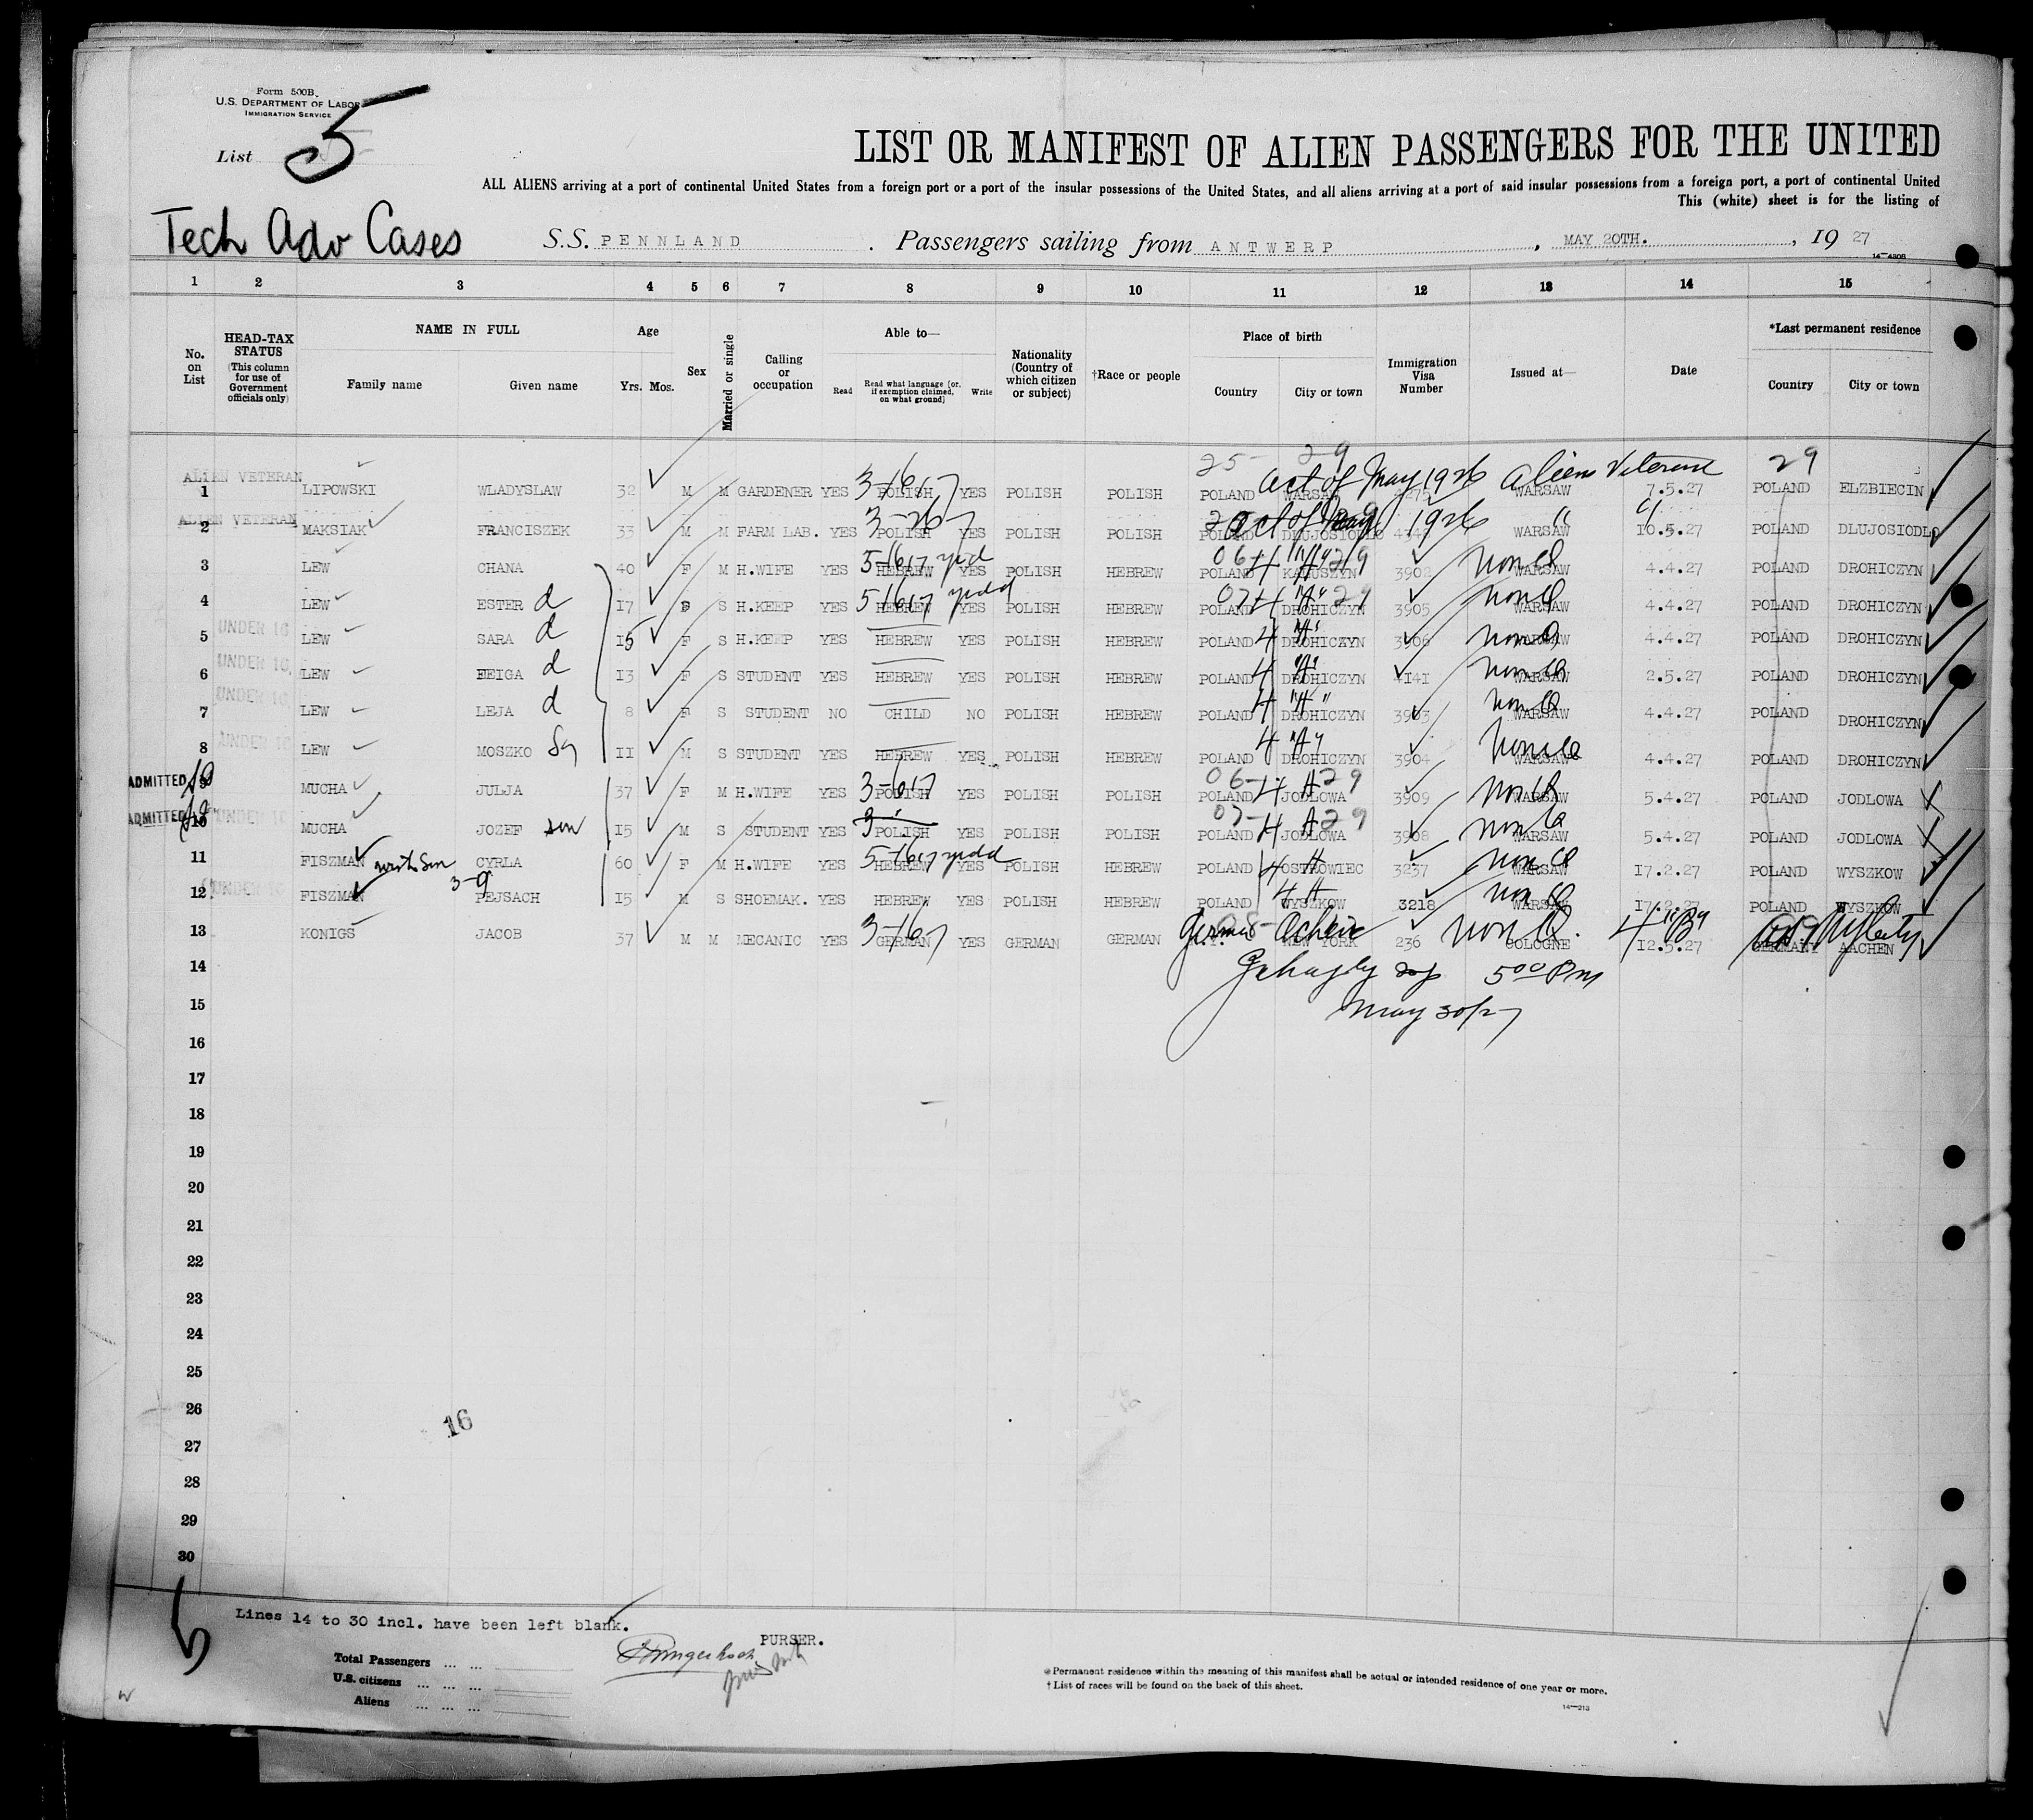 Form 500B.
U.S. DEPARTMENT OF LABOR
IMMIGRATION SERVICE
List 5
LIST OR MANIFEST OF ALIEN PASSENGERS FOR THE UNITED
ALL ALIENS arriving at a port of continental United States from a foreign port or a port of the insular possessions of the United States, and all aliens arriving at a port of said insular possessions from a foreign port, a port of continental United
This (white) sheet is for the listing of
Tech Adv Cases
S.S. PENNLAND. Passengers sailing from ANTWERP, MAY 20TH., 19 27
14—4308
1 2 3 4 5 6 7 8 9 10 11 12 13 14 15
No. on List
HEAD-TAX STATUS (This column for use of Government officials only)
NAME IN FULL Family name Given name
Age Yrs. Mos.
Sex
Married or single
Calling or occupation
Able to— Read Read what language [or, if exemption claimed, on what ground] Write
Nationality (Country of which citizen or subject)
†Race or people
Place of birth Country City or town
Immigration Visa Number
Issued at—
Date
*Last permanent residence Country City or town
25- 29 29
ALIEN VETERAN 3-16,7 act of May 1926 Aliens Veteran
1 LIPOWSKI WLADYSLAW 32 M M GARDENER YES POLISH YES POLISH POLISH POLAND WARSAW WARSAW 7.5.27 POLAND ELZBIECIN
ALIEN VETERAN act of May 1926 "
2 MAKSIAK FRANCISZEK 33 M M FARM LAB. YES POLISH YES POLISH POLISH POLAND DLUJOSIODLO WARSAW 10.5.27 POLAND DLUJOSIODLO
3 LEW CHANA 40 F M H.WIFE YES HEBREW YES POLISH HEBREW POLAND KALUSZYN 3902 WARSAW 4.4.27 POLAND DROHICZYN
4 LEW ESTER d 17 S H.KEEP YES HEBREW YES POLISH HEBREW POLAND DROHICZYN 3905 WARSAW 4.4.27 POLAND DROHICZYN
UNDER 16
5 LEW SARA d 15 F S H.KEEP YES HEBREW YES POLISH HEBREW POLAND DROHICZYN 3906 WARSAW 4.4.27 POLAND DROHICZYN
UNDER 16
6 LEW FEIGA d 13 F S STUDENT YES HEBREW YES POLISH HEBREW POLAND DROHICZYN 4141 WARSAW 2.5.27 POLAND DROHICZYN
UNDER 16
7 LEW LEJA d 8 F S STUDENT NO CHILD NO POLISH HEBREW POLAND DROHICZYN 3903 WARSAW 4.4.27 POLAND DROHICZYN
UNDER 16
8 LEW MOSZKO 11 M S STUDENT YES HEBREW YES POLISH HEBREW POLAND DROHICZYN 3904 WARSAW 4.4.27 POLAND DROHICZYN
ADMITTED
9 MUCHA JULJA 37 F M H.WIFE YES POLISH YES POLISH POLISH POLAND JODLOWA 3909 WARSAW 5.4.27 POLAND JODLOWA
ADMITTED UNDER 16
10 MUCHA JOZEF son 15 M S STUDENT YES POLISH YES POLISH POLISH POLAND JODLOWA 3908 WARSAW 5.4.27 POLAND JODLOWA
11 FISZMAN with son CYRLA 60 F M H.WIFE YES HEBREW YES POLISH HEBREW POLAND OSTROWIEC 3237 WARSAW 17.2.27 POLAND WYSZKOW
UNDER 16 3-9
12 FISZMAN PEJSACH 15 M S SHOEMAK. YES HEBREW YES POLISH HEBREW POLAND WYSZKOW 3218 WARSAW 17.2.27 POLAND WYSZKOW
13 KONIGS JACOB 37 M M MECANIC YES GERMAN YES GERMAN GERMAN NEW YORK 236 COLOGNE 12.5.27 GERMANY AACHEN
14 5 00 Pm
15 May 30/27
16
17
18
19
20
21
22
23
24
25
26
16
27
28
29
30
5
Lines 14 to 30 incl. have been left blank.
PURSER.
Total Passengers ... ...
U.S. citizens ... ... ...
Aliens ... ... ...
*Permanent residence within the meaning of this manifest shall be actual or intended residence of one year or more.
†List of races will be found on the back of this sheet.
14—213